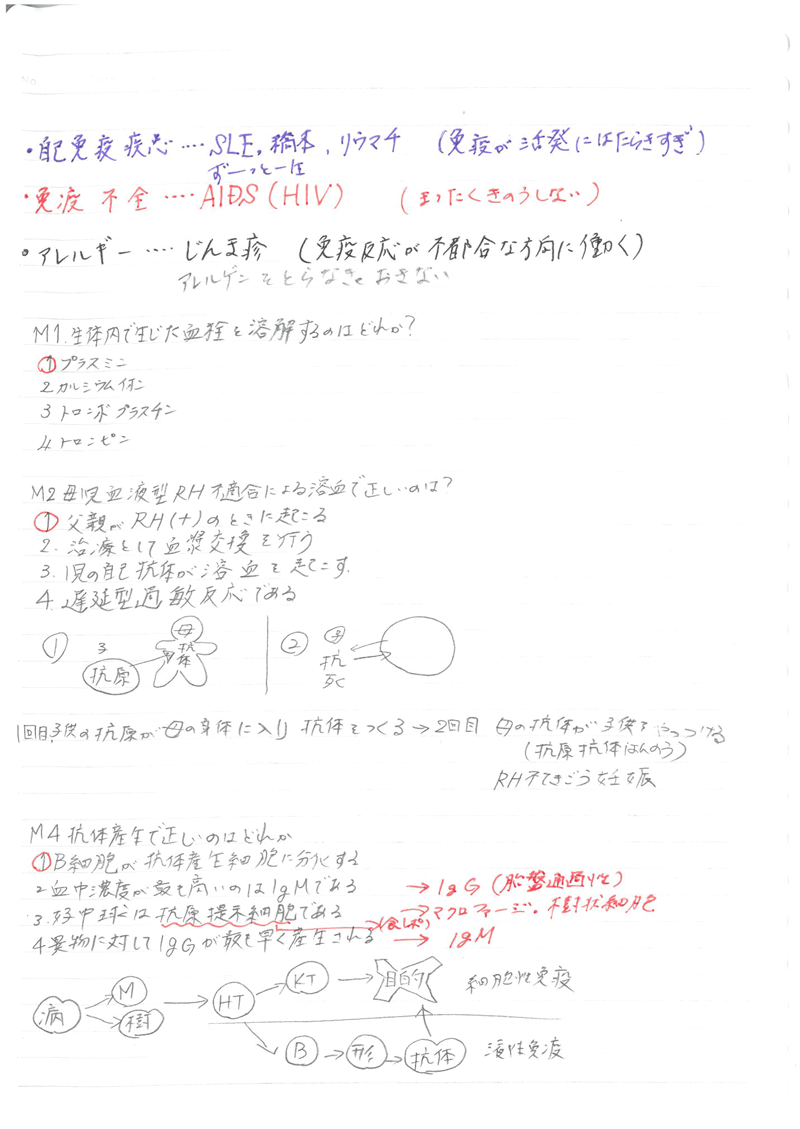 ・自己免疫疾患‥‥SLE, 橋本, リウマチ (免疫が活発にはたらきすぎ)
ずーっと一生
・免疫不全‥‥AIDS(HIV) (まったくきのうしない)
・アレルギー‥‥じんま疹 (免疫反応が不都合な方向に働く)
アレルゲンをとらなきゃおきない
M1.生体内で生じた血栓を溶解するのはどれか?
①プラスミン
2カルシウムイオン
3トロンボプラスチン
4トロンビン
M2母児血液型RH不適合による溶血で正しいのは?
①父親がRH(+)のときに起こる
2. 治療として血漿交換を行う
3. 児の自己抗体が溶血を起こす.
4. 遅延型過敏反応である
① 子 抗原 母 抗体
② 子 抗 死亡
1回目,子供の抗原が母の身体に入り 抗体をつくる→2回目 母の抗体が子供をやっつける
(抗原抗体はんのう)
RH不てきごう妊娠
M4抗体産生で正しいのはどれか
①B細胞が抗体産生細胞に分化する
2血中濃度が最も高いのはIgMである →IgG (胎盤通過性)
3.好中球は抗原提示細胞である →マクロファージ・樹状細胞
4異物に対してIgGが最も早く産生される → IgM
病 M 樹 → HT → KT → 目的 細胞性免疫
B → 形 → 抗体 液性免疫